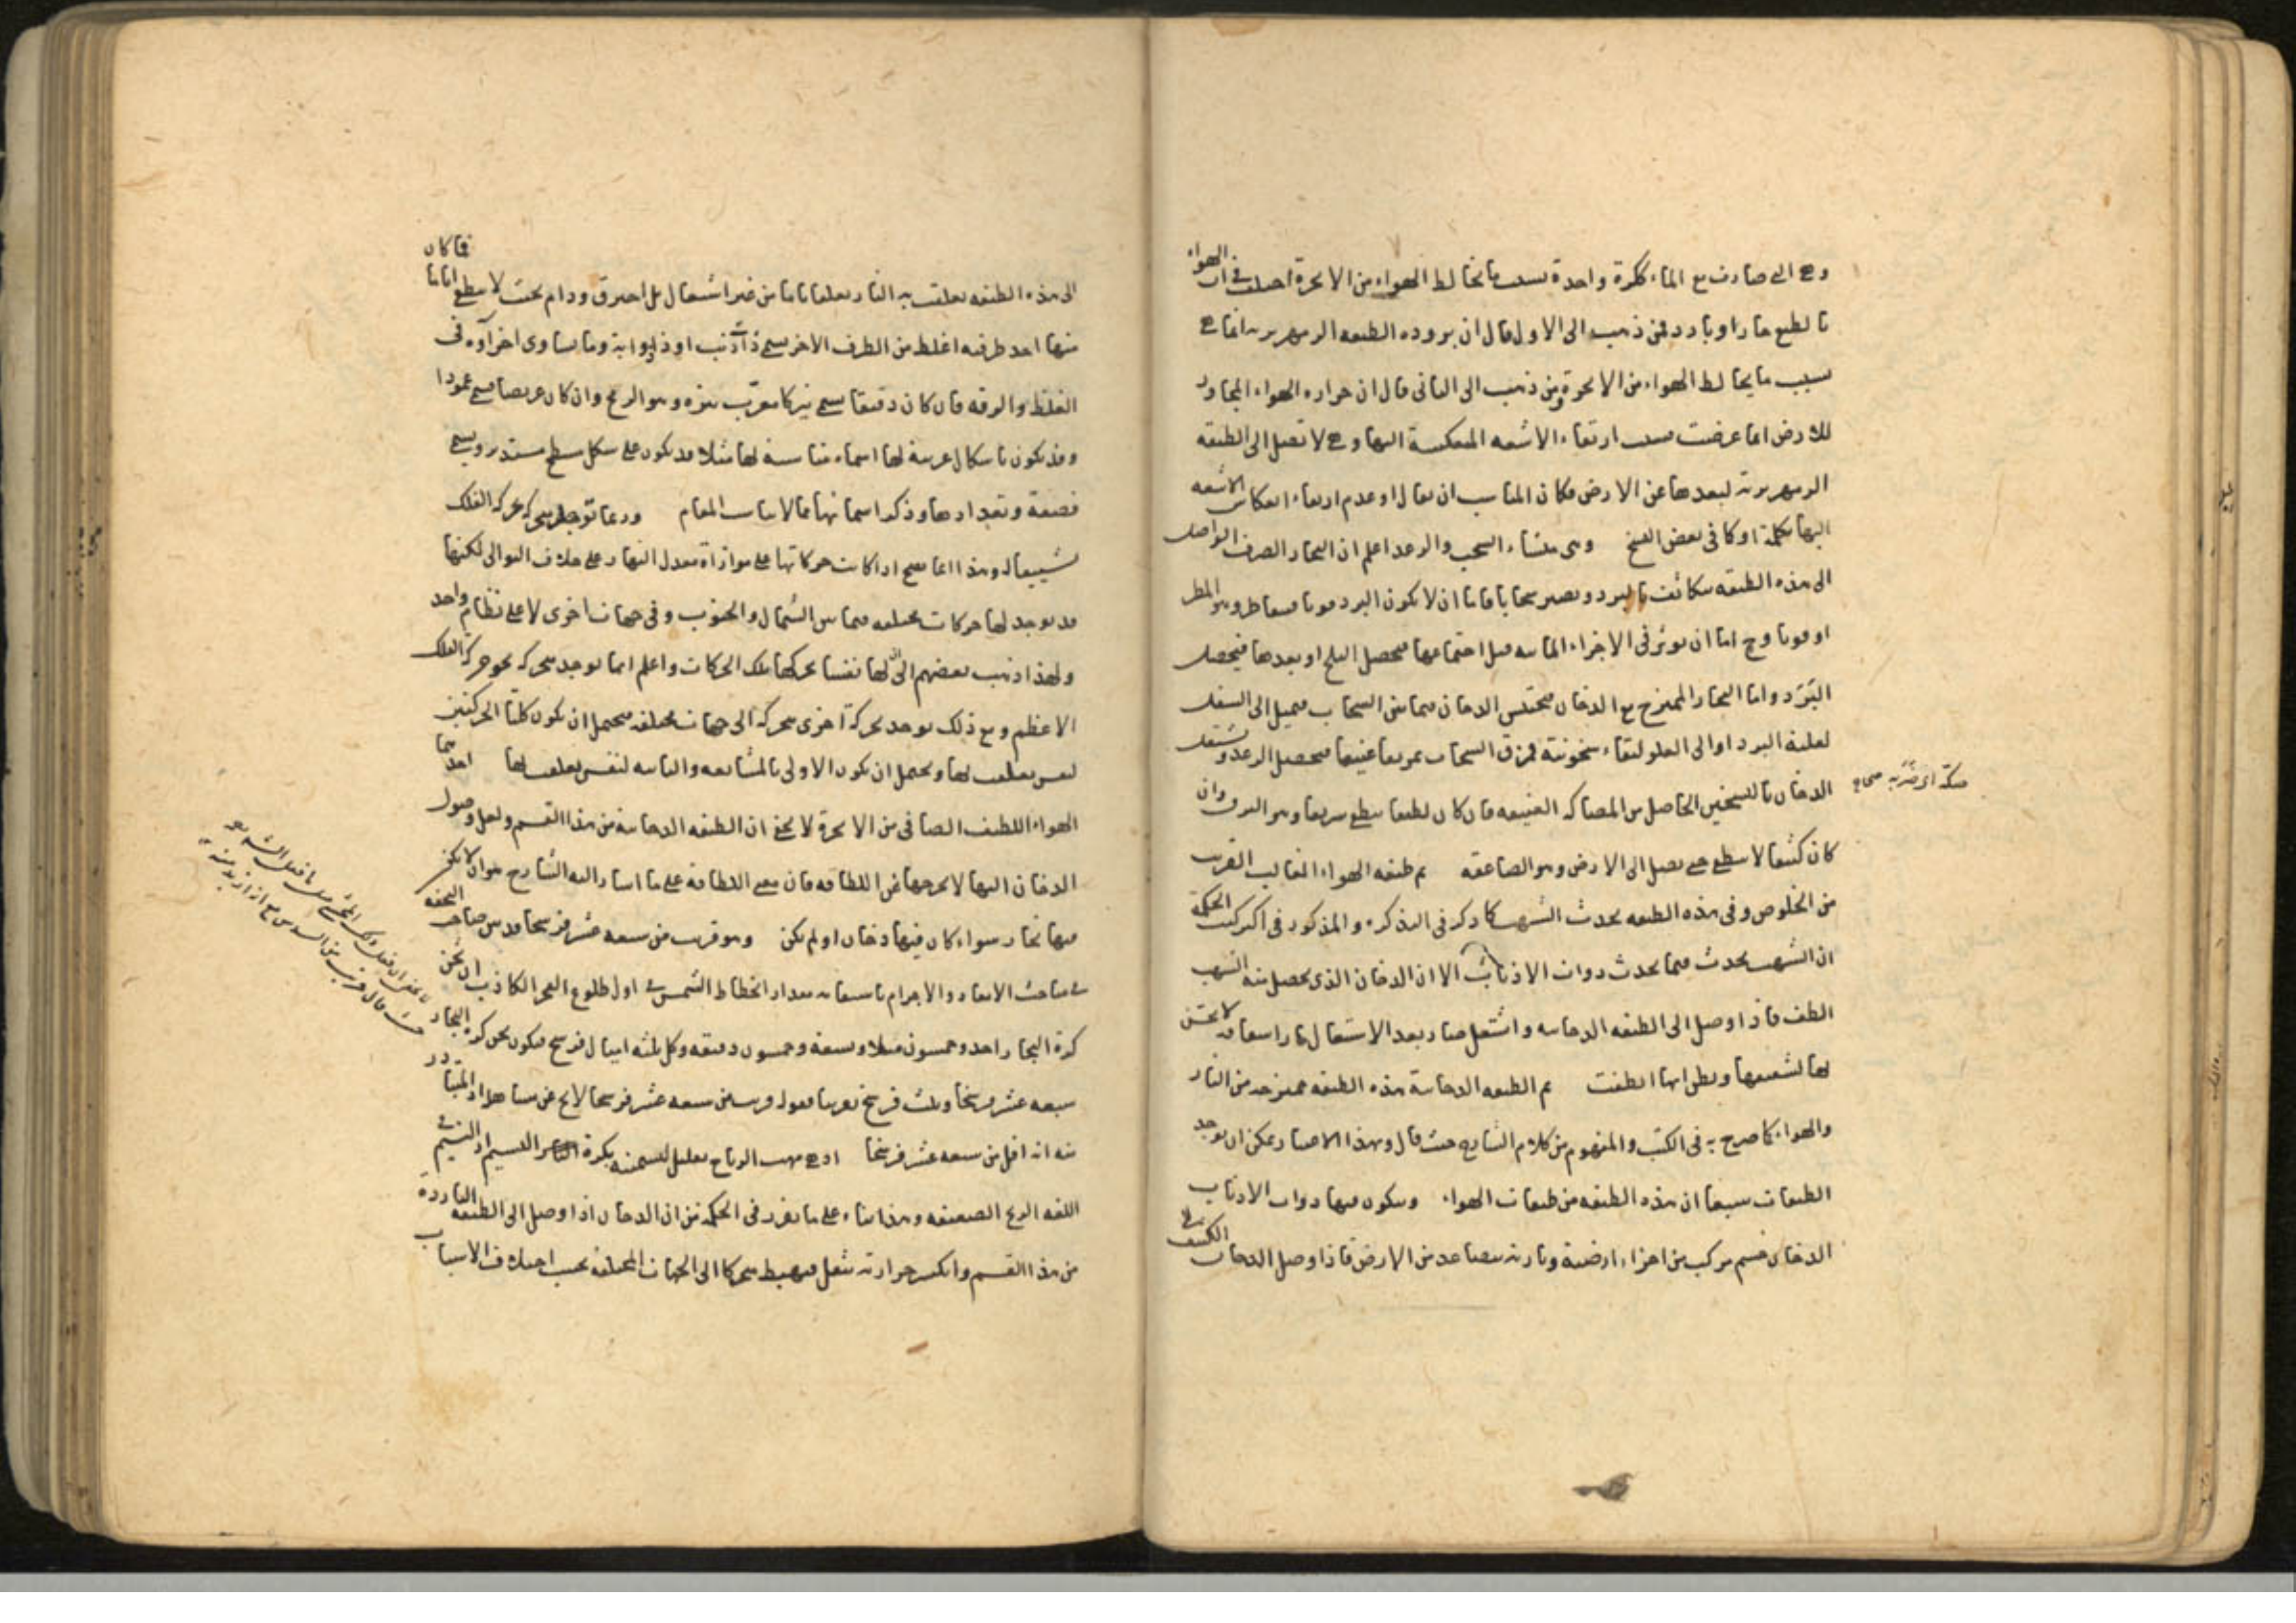 وهي التي صارت مع الماء ككرة واحدة بسبب ما يخالط الهواء من الابخرة اختلف في ان الهواء
بالطبع حار او بارد فمن ذهب الى الاول قال ان برودة الطبقة الزمهريرية انما هي
بسبب ما يخالط الهواء من الابخرة ومن ذهب الى الثاني قال ان حرارة الهواء المجاور
للارض انما عرضت بسبب ارتقاء الاشعة المنعكسة اليها وهي لا تصل الى الطبقة
الزمهريرية لبعدها عن الارض فكان المناسب ان يقال او عدم ارتقاء انعكاس الاشعة
اليها بكلمة او كما في بعض النسخ وهي منشاء السحب والرعد اعلم ان البخار الصرف الواصل
الى هذه الطبقة يتكاثف بالبرد ويصير سحابا فاما ان لا يكون البرد قويا فيتقاطر وهو المطر
او قويا وح اما ان يؤثر في الاجزاء المائية قبل اجتماعها فيحصل الثلج او بعدها فيحصل
البَرَد واما البخار الممتزج مع الدخان فيحتبس الدخان فيما بين السحاب فيميل الى السفل
لغلبة البرد او الى العلو لبقاء سخونته فمزق السحاب تمزيقا عنيفا فيحصل الرعد ويشتعل
الدخان بالتسخين الحاصل من المصاكة العنيفة فان كان لطيفا ينطفي سريعا وهو البرق وان
كان كثيفا لا ينطفي حتى يصل الى الارض وهو الصاعقة ثم طبقة الهواء الغالب القريب
من الخلوص وفي هذه الطبقة يحدث الشهب كما ذكر في التذكرة والمذكور في اكثر كتب الحكمة
ان الشهب يحدث فيما يحدث ذوات الاذناب الا ان الدخان الذي يحصل منه الشهب
الطف فاذا وصل الى الطبقة الدخانية واشتعل صار بعد الاشتعال نارا سعافه لا يحس
لها لشفيفها ويظن انها انطفت ثم الطبقة الدخانية هذه الطبقة ممتزجة من النار
والهواء كما صرح به في الكتب والمفهوم من كلام الشارح حيث قال وبهذا الاعتبار يمكن ان يوجد
الطبقات سبعا ان هذه الطبقة من طبقات الهواء ويتكون فيها ذوات الاذناب
الدخان جسم مركب من اجزاء ارضية ونارية يتصاعد من الارض فاذا وصل الدخان الكثيف
صكة اي ضربه صحاح
الى هذه الطبقة تعلقت به النار تعلقا تاما من غير اشتعال بل احترق ودام بحيث لا ينطفي اياما فما كان
منها احد طرفيه اغلظ من الطرف الاخر يسمى ذا ذنب او ذا ذوابة وما يساوى اخراؤه في
الغلظ والرقة فان كان دقيقا يسمى نيزكا معرب نيزه وهو الرمح وان كان عريضا يسمى عمودا
وقد يكون باشكال غريبة لها اسماء مناسبة لها مثلا قد يكون على شكل سطح مستدير ويسمى
قصعة وتعدادها وذكر اسمائها مما لا يناسب المقام وربما توجد متحركة بحركة الفلك
تشييعا له وهذا انما يصح اذا كانت حركاتها على موازاة معدل النهار على خلاف التوالى لكنها
قد يوجد لها حركات مختلفة فيما بين الشمال والجنوب وفي جهات اخرى لا على نظام واحد
ولهذا ذهب بعضهم الى ان لها نفسا يحركها بتلك الحركات واعلم انما يوجد متحركة نحو حركة الفلك
الاعظم ومع ذلك يوجد بحركة اخرى متحركة الى جهات مختلفة فيحتمل ان يكون كلتا الحركتين
لنفس تعلقت بها ويحتمل ان يكون الاولى بالمشايعة والثانية لنفس تعلقت بها احدهما
الهواء اللطيف الصافي من الابخرة لا يخفى ان الطبقة الدخانية من هذا القسم ولعل وصول
الدخان اليها لا يخرجها عن اللطافة فان معنى اللطافة على ما اشار اليه الشارح هو ان لا يكون
فيها بخار سواء كان فيها دخان او لم يكن وهو قريب من سبعة عشر فرسخا قد بين صاحب التحفة
في مباحث الابعاد والاجرام باستعانة مقدار انحطاط الشمس في اول طلوع الفجر الكاذب ان ثخن
كرة البخار احد وخمسون ميلا وتسعة وخمسون دقيقة وكل ثلثة اميال فرسخ فيكون ثخن كرة البخار
سبعة عشر فرسخا وثلث فرسخ تقريبا فقوله قريب من سبعة عشر فرسخا لا يخ عن مساهلة اذ المتبادر
منه انه اقل من سبعة عشر فرسخا اذ هي مهب الرياح تعليل لتسميته بكرة النسيم اذ النسيم في
اللغة الريح الضعيفة وهذا بناء على ما تقرر في الحكمة من ان الدخان اذا وصل الى الطبقة الباردة
من هذا القسم وانكسر حرارته ثقل فيهبط متحركا الى الجهات المختلفة بحسب اختلاف الاسباب